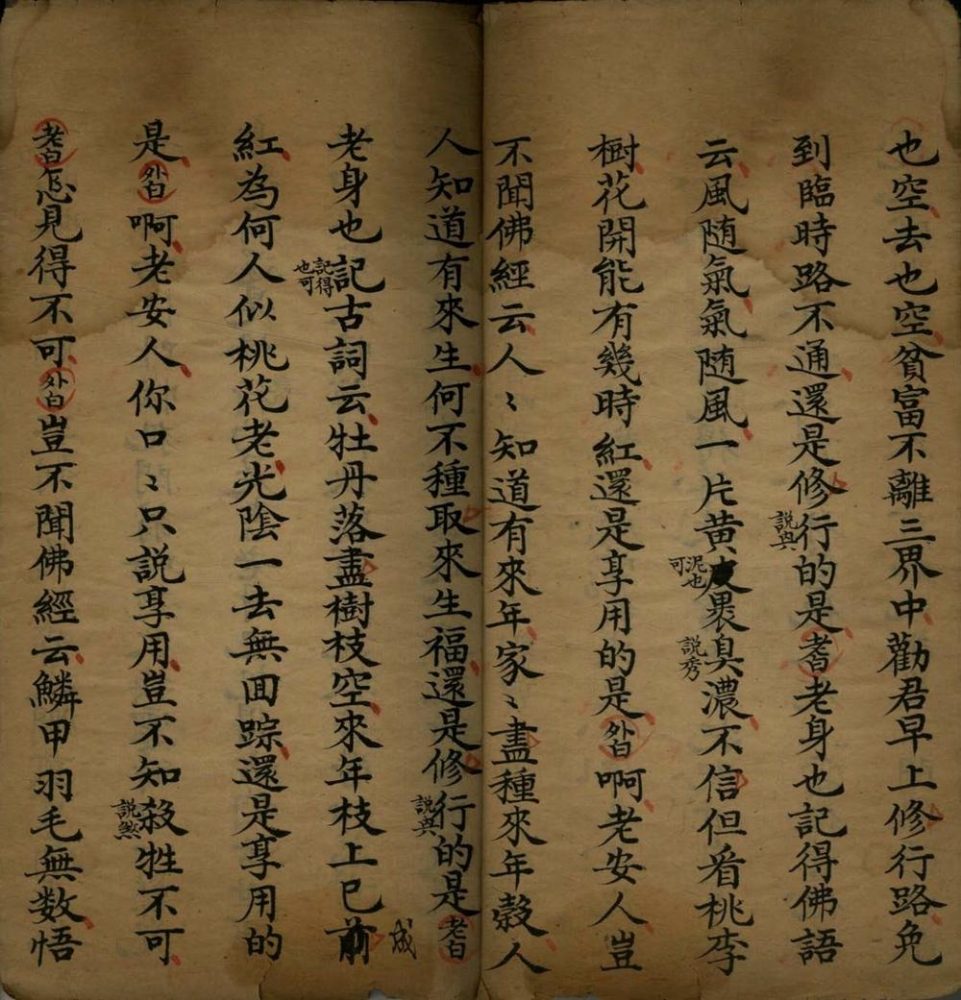 也空去也空貧富不離三界中勸君早上修行路免
到臨時路不通還是修行的是耆老身也記得佛語
說與
云風随氣氣随風一片黄皮褁臭濃不信但看桃李
泥也可
說秀
樹花開能有幾時紅還是享用的是外白啊老安人豈
不聞佛經云人〻知道有來年家〻盡種來年穀人
人知道有來生何不種取來生福還是修行的是老白
說與
老身也記古詞云牡丹落盡樹枝空來年枝上已前
記得也可
成
紅為何人似桃花老光陰一去無囬踪還是享用的
是外白啊老安人你口〻只説享用豈不知殺牲不可
說煞
老白怎見得不可外白豈不聞佛經云鱗甲羽毛無数悟